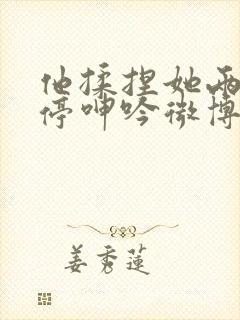 他揉捏她两
停呻吟微博
姜秀莲